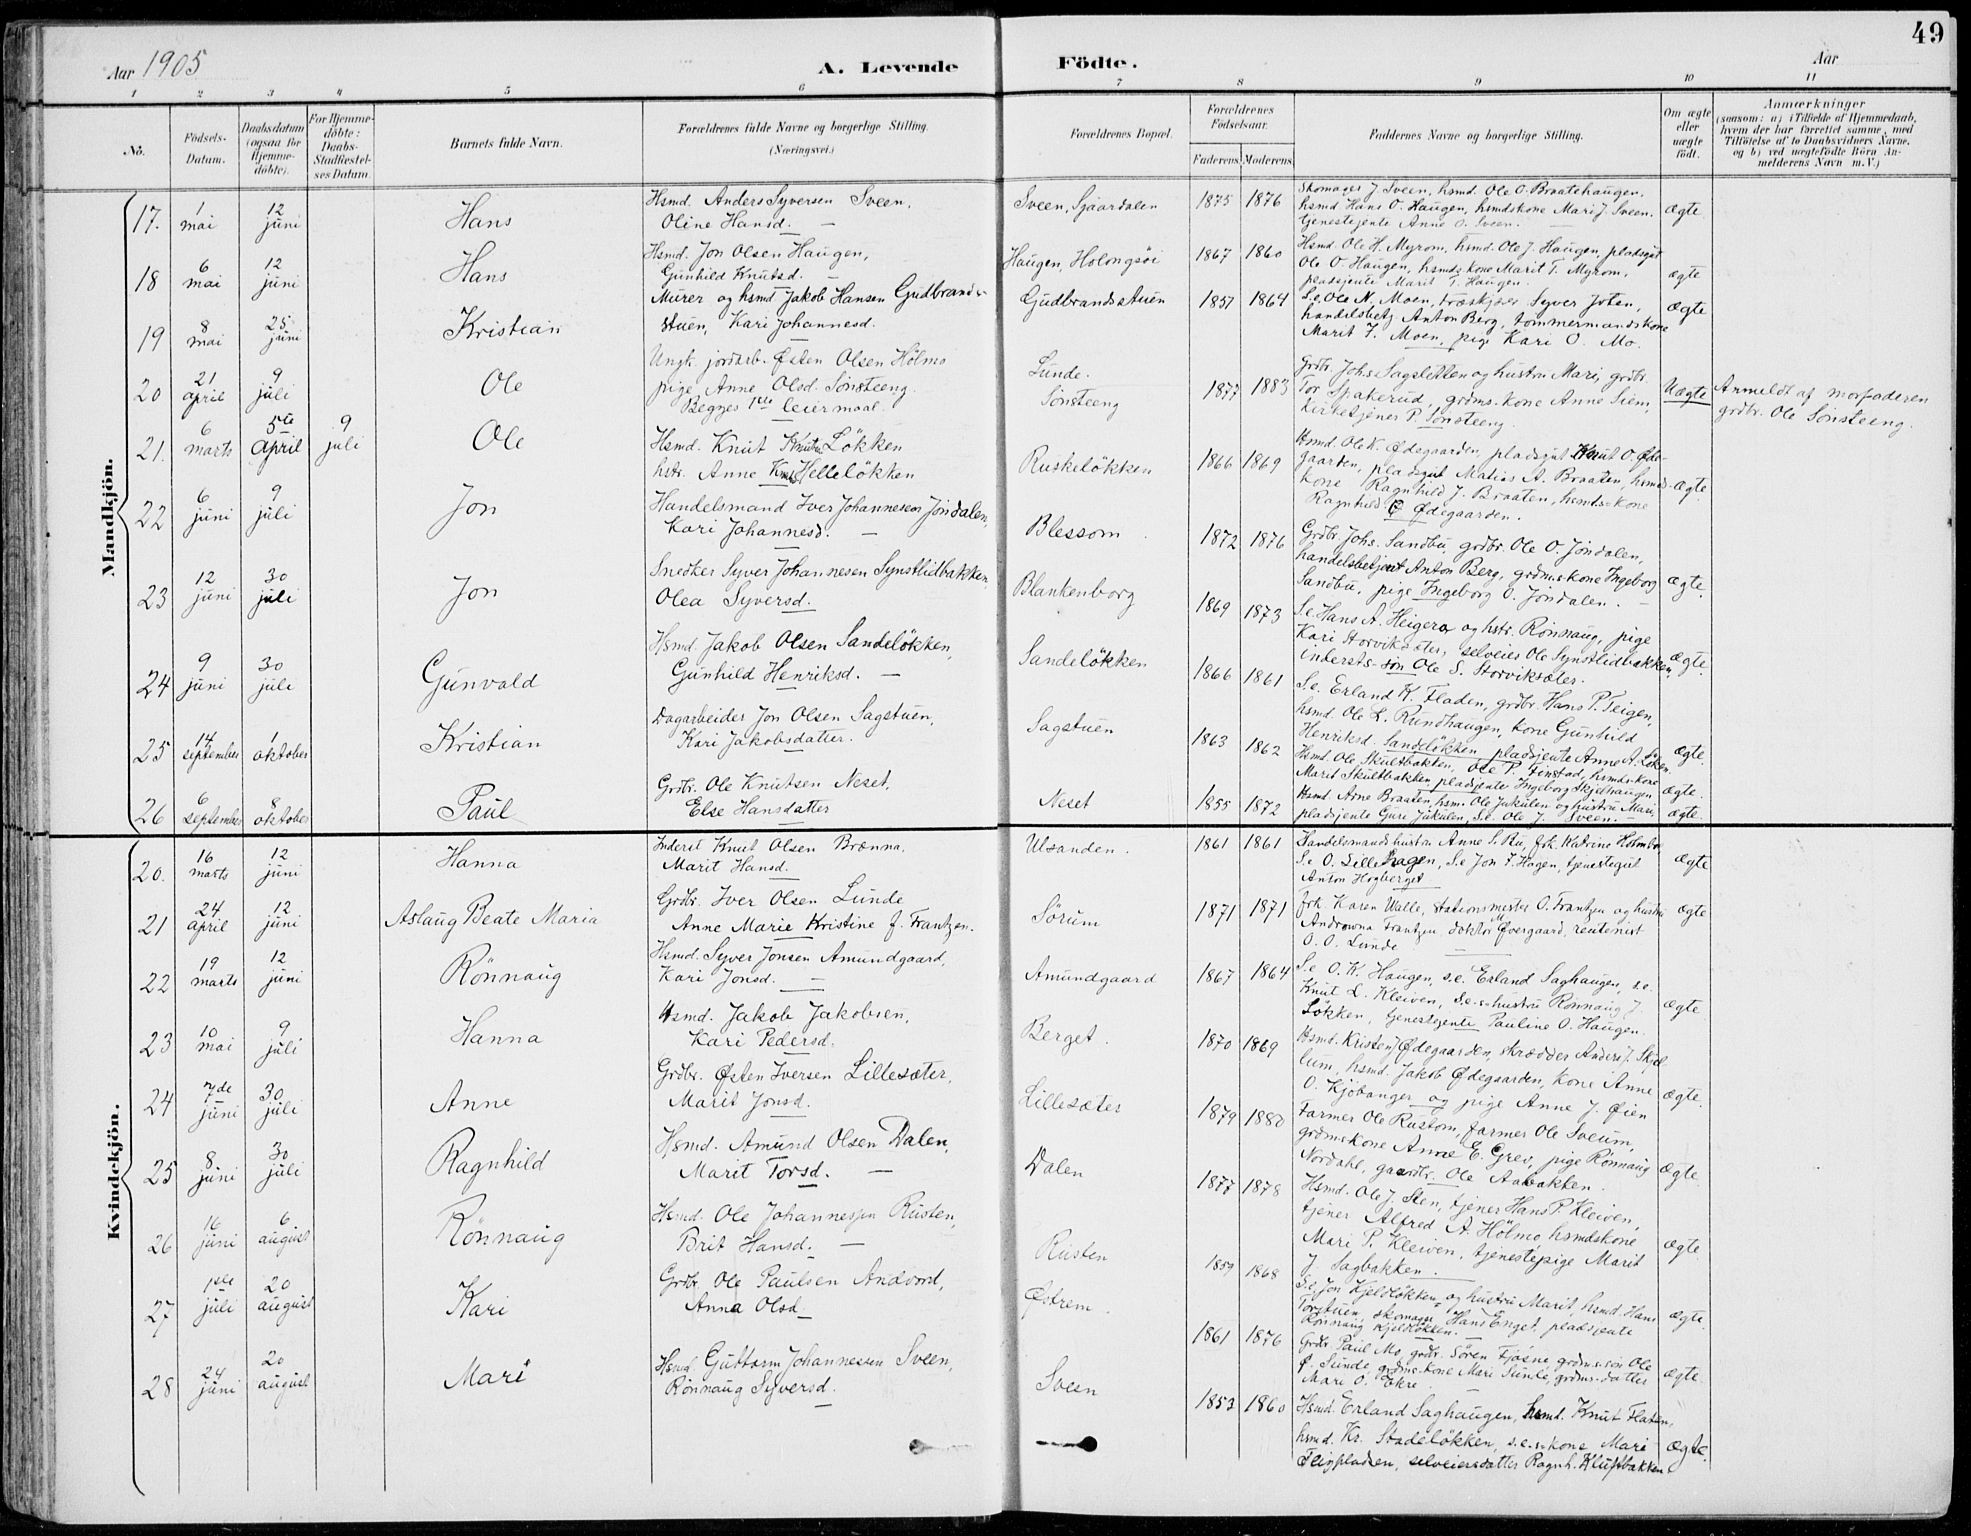 49
Aar 1905
A. Levende Födte.
Aar
1 2 3 4 5 6 7 8 9 10 11
No.
Födsels-Datum.
Daabsdatum (ogsaa for Hjemme-döbte).
For Hjemme-döbte: Daabs-Stadfæstel-ses Datum.
Barnets fulde Navn.
Forældrenes fulde Navne og borgerlige Stilling. (Næringsvei.)
Forældrenes Bopæl.
Forældrenes Födselsaar.
Faderens. Moderens.
Faddernes Navne og borgerlige Stilling.
Om ægte eller uægte födt.
Anmærkninger
(saasom: a) i Tilfælde af Hjemmedaab, hvem der har forrettet samme, med Tilföielse af to Daabsvidners Navne, og b) ved uægtefödte Börn Anmelderens Navn m.V.)
Mandkjön.
17. 1 mai 12 juni Hans
Hsmd. Anders Syversen Sveen,
Oline Hansd. —
Sveen, Sjaardalen 1875 1876
Skomager J. Sveen, hsmd. Ole O. Braatehaugen,
hsmd Hans O. Haugen, hsmdskone Mari J. Sveen.
tjenestejente Anne O. Sveen.
ægte
18 6 mai 12 juni Hans
Hsmd. Jon Olsen Haugen,
Gunhild Knutsd.
Haugen, Holongsöi 1867 1860
Hsmd. Ole H. Myrom, hsmd. Ole J. Haugen, pladsgut
Ole O. Haugen, hsmds-kone Marit T. Myrom,
pladsjente Marit T. Haugen.
ægte
19 8 mai 25 juni Kristian
Murer og hsmd Jakob Hansen Gudbrands-
stuen, Kari Johannesd.
Gudbrandsstuen 1857 1864
S.e. Ole N. Moen, træskjær Syver Joten,
handelsbetj Anton Berg, tømmermandskone
Marit J. Moen, pige Kari O. Mo.
ægte
20 21 april 9 juli Ole
Ungk. jordarb. Østen Olsen Hölmo
pige Anne Olsd. Sönsteeng.
Begges 1ste leiermaal.
Lunde.
Sönsteeng 1877 1883
Grdbr. Johs Sagsletten og hustru Mari, grdbr.
Tor Spakerud, grdms. kone Anne Siem,
Kirketjener P. Sönsteeng.
Uægte
Anmeldt af morfaderen
grdbr. Ole Sönsteeng.
21. 6 marts 5te April 9 juli Ole
Hsmd. Knut Knuts Lökken
hstr. Anne Knuts Hellelökken
Ruskelökken 1866 1869
Hsmd. Ole K. Ødegaarden, pladsgut Knut O. Øde-
gaarden, pladsgut Matias A. Braaten, hsmds-
kone Ragnhild J. Braaten, hsmds-kone
Ragnhild E Ødegaarden.
ægte.
22 6 juni 9 juli Jon
Handelsmand Iver Johannesen Jöndalen,
Kari Johannesd. —
Blessom 1872 1876
Grdbr. Johs. Sandbu, grdbr. Ole O. Jöndalen,
handelsbetjent Anton Berg, grdmskone Ingeborg
Sandbu, pige Ingeborg O. Jöndalen.
ægte.
23 12 juni 30 juli Jon
Snedker Syver Johannesen Synstlidbakken,
Olea Syversd.
Blankenborg 1869 1873
S.e. Hans A. Heigera og hstr. Rönnaug, pige
Kari Storviksæter, selveier Ole Synstlidbakken,
indersts-sön Ole S. Storviksæter.
ægte.
24 9 juni 30 juli Gunvald
Hsmd. Jakob Olsen Sandelökken,
Gunhild Henriksd. —
Sandelökken 1866 1861
S.e. Erland K. Fladen, grdbr. Hans P. Teigen,
hsmd. Ole L. Rundhaugen, kone Gunhild
Henriksd. Sandelökken, pladsjente Anne A. Löken.
ægte.
25 14 september 1 oktober Kristian
Dagarbeider Jon Olsen Sagstuen,
Kari Jakobsdatter.
Sagstuen 1863 1862
Hsmd. Ole Skultbakken, Ole P. Finstad, hsmds-kone
Marit Skultbakken pladsjente Ingeborg Skjelhaugen
ægte.
26 6 september 8 oktober Paul
Grdbr. Ole Knutsen Neset,
Else Hansdatter
Neset 1855 1872
Hsmd. Arne Braaten, hsm. Ole Jukulen og hustru Mari,
pladsjente Guri Jukulen, S.e. Ole J. Sveen.
ægte.
Kvindekjön.
20. 16 marts 12 juni Hanna
Inderst Knut Olsen Brænna,
Marit Hansd.
Ulsanden. 1861 1861
Handelsmands hustru Anne S. Ru, frk. Katrine Holmbo,
S.e O. Lillehagen, S.e Jon J. Hagen, tjenestegut
Anton Hogberget
ægte
21 24 april 12 juni Aslaug Beate Maria
Grdbr. Iver Olsen Lunde
Anne Marie Kristine f. Frantzen.
Sörum 1871 1871
frk. Karen Walle, Stationsmester O. Frantzen og hustru
Androwna Frantzen, doktor M Øvergaard, rentenist
O. O. Lunde
ægte
22 19 marts 12 juni Rönnaug
Hsmd. Syver Jonsen Amundgaard,
Kari Jonsd. —
Amundgaard 1867 1864
S.e. O. K. Haugen, s.e. Erland Saghaugen, s.e.
Knut L. Kleiven, S.e.s-hustru Rönnaug J.
Lökken, tjenestejente Pauline O. Haugen.
ægte.
23 10 mai 9 juli Hanna
Hsmd. Jakob Jakobsen,
Kari Pedersd.
Berget. 1870 1869
Hsmd. Kristen J Ødegaarden, skrædder Anders J. Skjel-
lum, hsmd. Jakob Ødegaarden, kone Anne
O. Kjöbanger og pige Anne J. Øien
ægte.
24 7de juni 30 juli Anne
Grdbr. Østen Iversen Lillesæter,
Marit Jonsd.
Lillesæter 1879 1880
Farmer Ole Rustom, farmer Ole Sveum,
grdmskone Anne E. Grev, pige Rönnaug
Nordahl, gaardbr. Ole Aabakken.
ægte.
25 8 juni 30 juli Ragnhild
Hsmd. Amund Olsen Dalen,
Marit Torsd. —
Dalen 1877 1878
Hsmd. Ole J. Sten, tjener Hans P Kleiven,
tjener Alfred A. Hölmo hsmdskone
Mari P. Kleiven, tjenestepige Marit
J. Sagbakken.
ægte.
26 16 juni 6 august Rönnaug
Hsmd. Ole Johannesen Rusten,
Brit Hansd. —
Rusten 1859 1868
S.e. Jon Kjeldlökken og hustru Marit, hsmd. Hans
Torstuen, skomager Hans Enget, pladsjente
Rönnaug Kjeldlökken.
ægte.
27 1ste juli 20 august Kari
Grdbr. Ole Paulsen Andvord,
Anna Olsd.
Østrem. 1861 1876
Grdbr. Paul Mo, grdbr. Sören Fjösne, grdms-sön Ole
P. Sunde, grdms-kone Mari Sunde, grdms-datter
Mari O. Ekre.
ægte.
28 24 juni 20 august Mari
Hsmd. Guttorm Johannessen Sveen,
Rönnaug Syversd.
Sveen 1853 1860
Hsmd. Erland Saghaugen, hsmd. Knut Flaten,
hsmd. Kr. Stadelökken, s.e.s-kone Mari
Teigpladsen, selveiersdatter Ragnh. Kluftbakken
ægte.